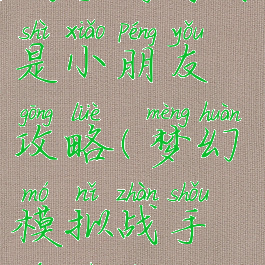 shì xiǎo Péng yǒu
是小朋友
gōng lüè mèng huàn
攻略(梦幻
mó nǐ zhàn shǒu
模拟战手